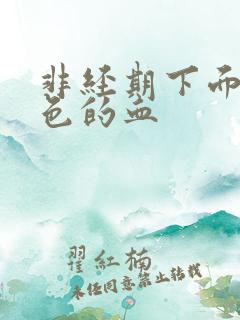 非经期下面
色的血
翟红楠
未经同意禁止转载